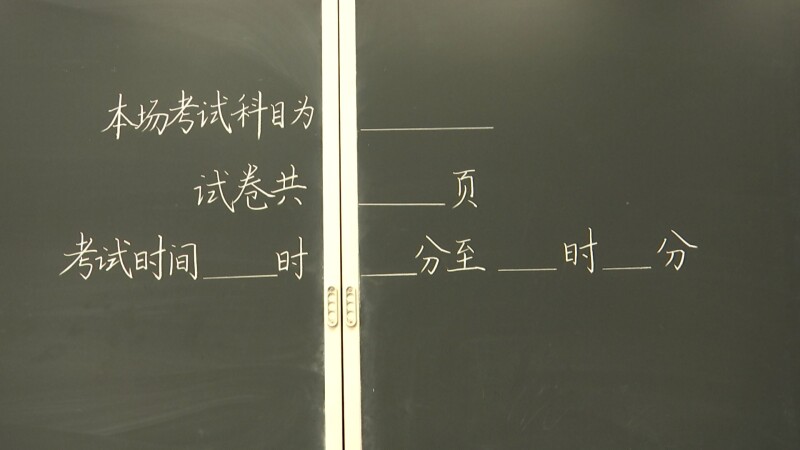 本场考试科目为______
试卷共____页
考试时间____时___分至___时___分